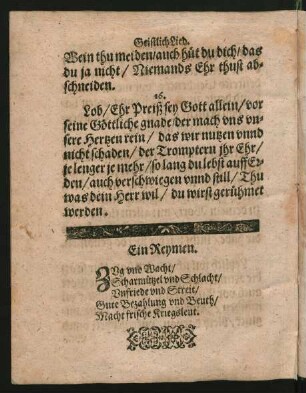 Geistlich Lied.
Wein thu meiden/ auch hüt du dich/ das
du ja nicht/ Niemands Ehr thust ab-
schneiden.
26.
Lob/ Ehr Preiß sey Gott allein/ vor
seine Göttliche gnade/ der mach vns vn-
sere Hertzen rein/ das wir nutzen vnnd
nicht schaden/ der Tromptern jhr Ehr/
je lenger je mehr/ so lang du lebst auff Er-
den/ auch verschwiegen vnnd still/ Thu
was dein Herr wil/ du wirst gerühmet
werden.
Ein Reymen.
ZVg vnd Wacht/
Scharmützel vnd Schlacht/
Vnfriede vnd Streit/
Gute Bezahlung vnd Beuth/
Macht frische Kriegsleut.